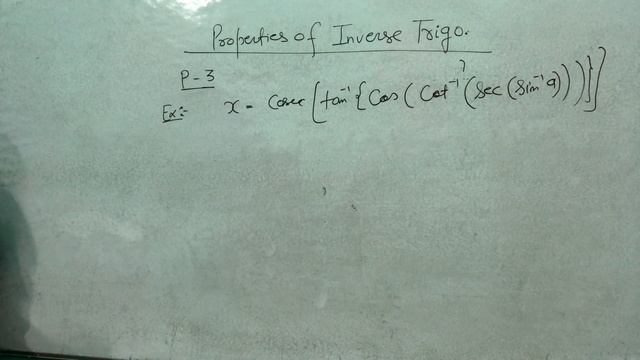 Properties of Inverse Trigo.
P-3
Ex:- x = Cosec [tan⁻¹{Cos(Cot⁻¹(Sec(Sin⁻¹a)))}]